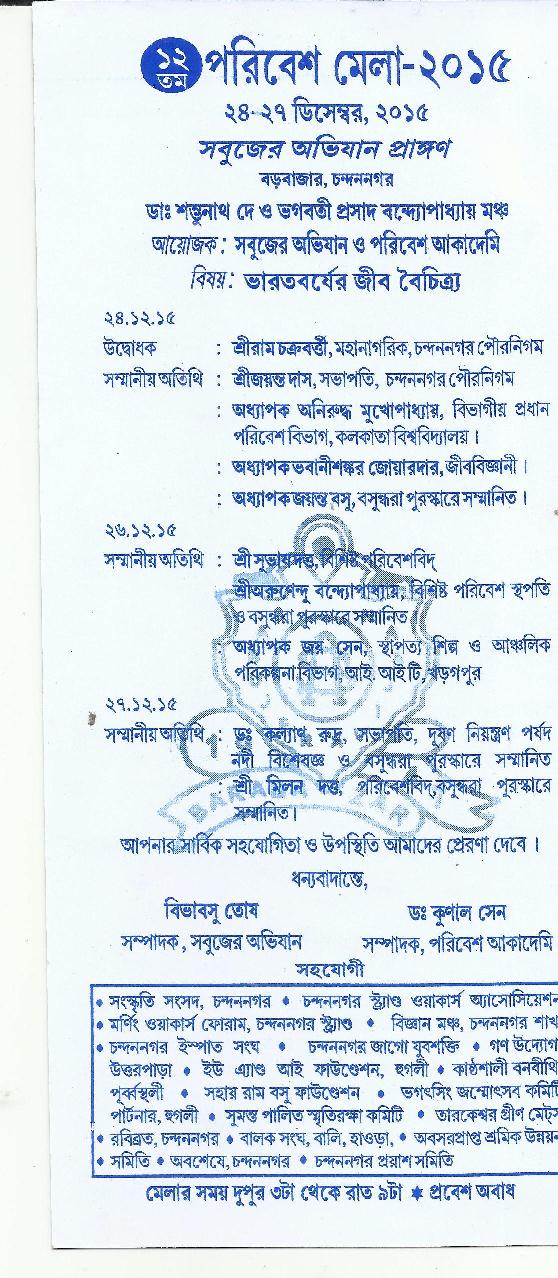 ১২
তম
পরিবেশ মেলা-২০১৫
২৪-২৭ ডিসেম্বর, ২০১৫
সবুজের অভিযান প্রাঙ্গণ
বড়বাজার, চন্দননগর
ডাঃ শম্ভুনাথ দে ও ভগবতী প্রসাদ বন্দ্যোপাধ্যায় মঞ্চ
আয়োজক : সবুজের অভিযান ও পরিবেশ আকাদেমি
বিষয় : ভারতবর্ষের জীব বৈচিত্র্য
২৪.১২.১৫
উদ্বোধক : শ্রীরাম চক্রবর্ত্তী, মহানাগরিক, চন্দননগর পৌরনিগম
সম্মানীয় অতিথি : শ্রীজয়ন্ত দাস, সভাপতি, চন্দননগর পৌরনিগম
: অধ্যাপক অনিরুদ্ধ মুখোপাধ্যায়, বিভাগীয় প্রধান
পরিবেশ বিভাগ, কলকাতা বিশ্ববিদ্যালয়।
: অধ্যাপক ভবানীশঙ্কর জোয়ারদার, জীববিজ্ঞানী।
: অধ্যাপক জয়ন্ত বসু, বসুন্ধরা পুরস্কারে সম্মানিত।
২৬.১২.১৫
সম্মানীয় অতিথি : শ্রী সুভাষ দত্ত, বিশিষ্ট পরিবেশবিদ্
শ্রীঅরুণেন্দু বন্দ্যোপাধ্যায়, বিশিষ্ট পরিবেশ স্থপতি
ও বসুন্ধরা পুরস্কারে সম্মানিত।
: অধ্যাপক জয় সেন, স্থাপত্য শিল্প ও আঞ্চলিক
পরিকল্পনা বিভাগ, আই. আই টি, খড়গপুর
২৭.১২.১৫
সম্মানীয় অতিথি : ডঃ কল্যাণ রুদ্র, সভাপতি, দূষণ নিয়ন্ত্রণ পর্ষদ
নদী বিশেষজ্ঞ ও বসুন্ধরা পুরস্কারে সম্মানিত
: শ্রী মিলন দত্ত, পরিবেশবিদ, বসুন্ধরা পুরস্কারে
সম্মানিত।
BARABAZAR
আপনার সার্বিক সহযোগিতা ও উপস্থিতি আমাদের প্রেরণা দেবে।
ধন্যবাদান্তে,
বিভাবসু তোষ ডঃ কুণাল সেন
সম্পাদক, সবুজের অভিযান সম্পাদক, পরিবেশ আকাদেমি
সহযোগী
• সংস্কৃতি সংসদ, চন্দননগর • চন্দননগর স্ট্র্যাণ্ড ওয়াকার্স অ্যাসোসিয়েশন
• মর্ণিং ওয়াকার্স ফোরাম, চন্দননগর স্ট্র্যাণ্ড • বিজ্ঞান মঞ্চ, চন্দননগর শাখা
• চন্দননগর ইস্পাত সংঘ • চন্দননগর জাগো যুবশক্তি • গণ উদ্যোগ
উত্তরপাড়া • ইউ এ্যাণ্ড আই ফাউণ্ডেশন, হুগলী • কাষ্ঠশালী বনবীথি
পূর্ব্বস্থলী • সহার রাম বসু ফাউণ্ডেশন • ভগৎসিং জন্মোৎসব কমিটি
পার্টনার, হুগলী • সুমন্ত পালিত স্মৃতিরক্ষা কমিটি • তারকেশ্বর গ্রীণ মেটস
• রবিব্রত, চন্দননগর • বালক সংঘ, বালি, হাওড়া, • অবসরপ্রাপ্ত শ্রমিক উন্নয়ন
• সমিতি • অবশেষে, চন্দননগর • চন্দননগর প্রয়াশ সমিতি
মেলার সময় দুপুর ৩টা থেকে রাত ৯টা ✶ প্রবেশ অবাধ